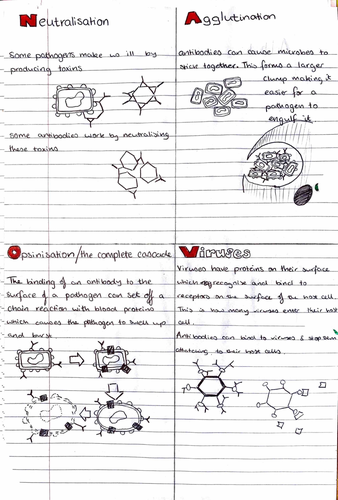 Neutralisation
Some pathogens make us ill by
producing toxins
Some antibodies work by neutralising
these toxins
Agglutination
antibodies can cause microbes to
stick together. This forms a larger
clump making it
easier for a
pathogen to
engulf it
Opsinisation/the complete cascade
The binding of an antibody to the
surface of a pathogen can set off a
chain reaction with blood proteins
which causes the pathogen to swell up
and burst
Viruses
Viruses have proteins on their surface
which recognise and bind to
receptors on the surface of the host cell.
This is how many viruses enter their host
cell.
Antibodies can bind to viruses & stop them
attatching to their host cells.